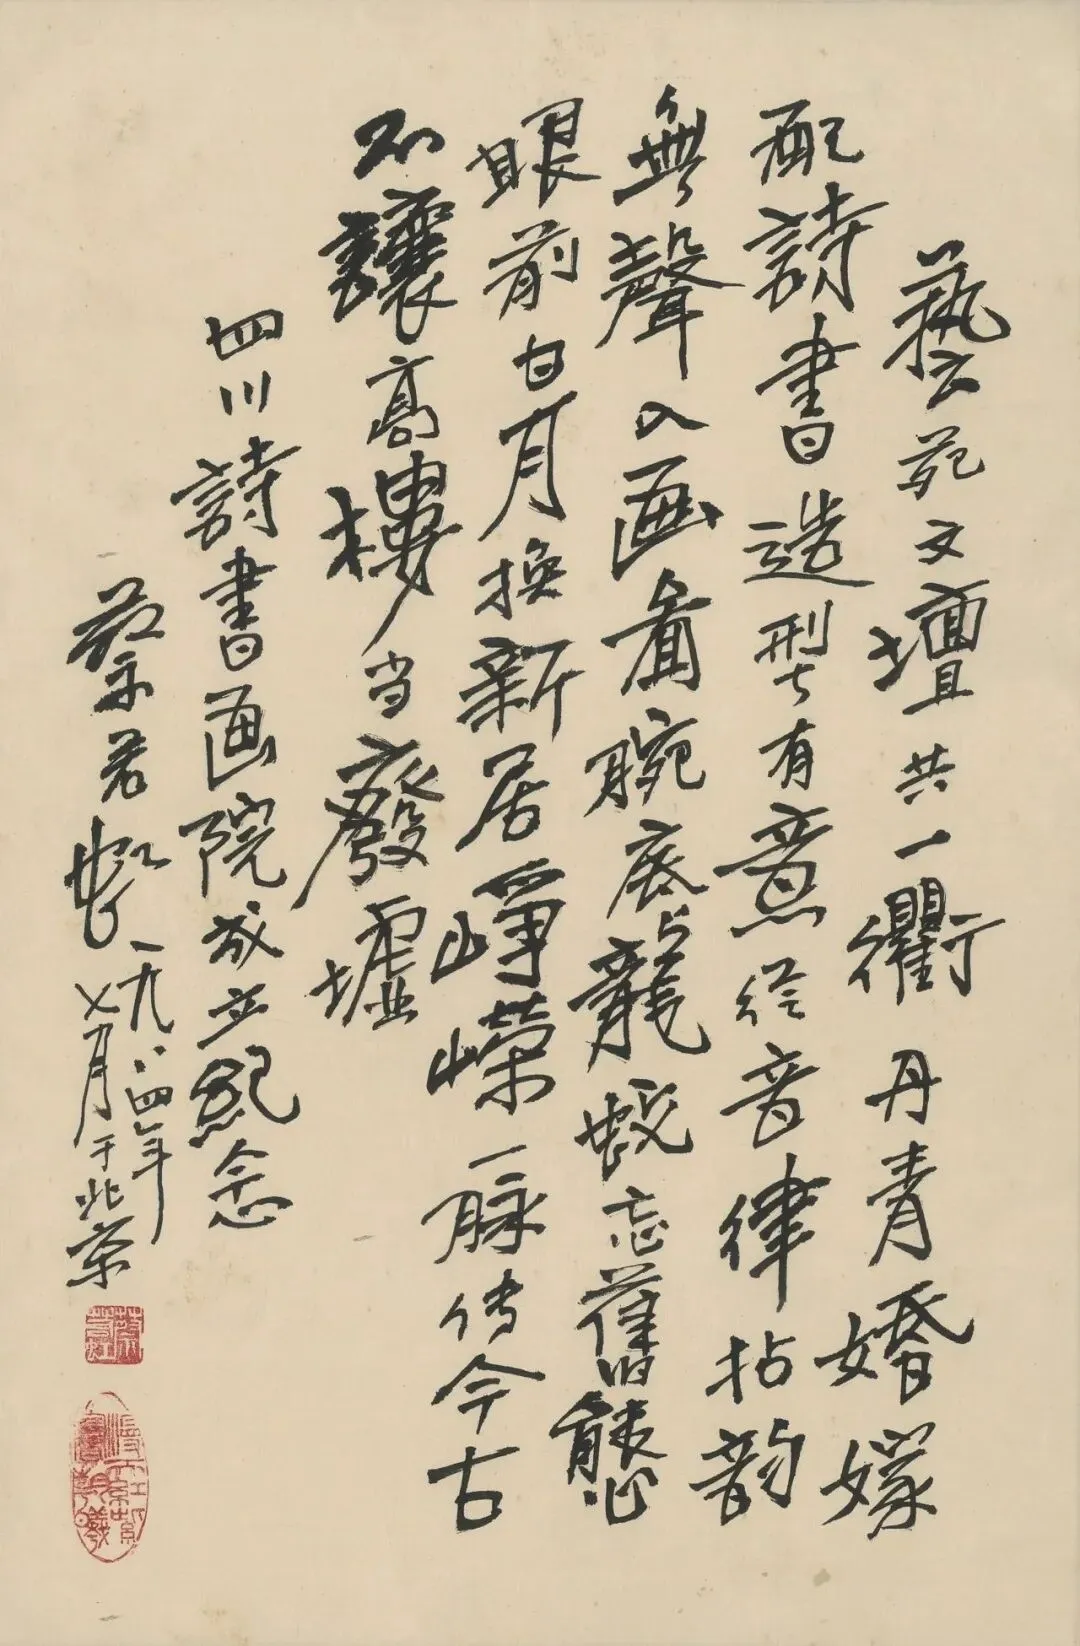 藝苑文壇共一衢丹青婚嫁
配詩書造型有意経音律拈韵
無聲入画圖腕底龍蛇忘舊態
眼前日月換新居崢嶸一脉传今古
不讓高樓当廢墟
四川詩書画院成立紀念
蔡若虹一九八四年
七月于北京